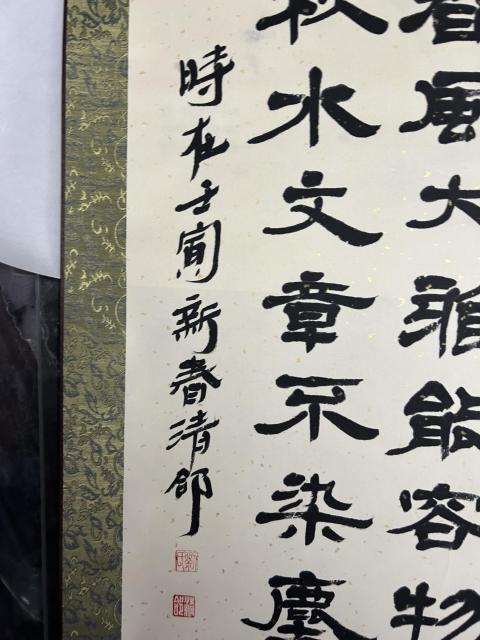 春風大雅能容物
秋水文章不染塵
時在壬寅新春清郃